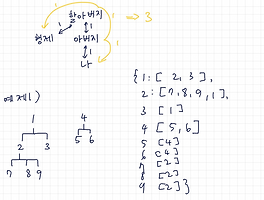 할아버지 1 ⇒ 3
1
형제 1
아버지 1
1
나
예제1)
1 4
2 3 5 6
7 8 9
{1: [ 2, 3 ],
2: [7, 8, 9, 1],
3 [1]
4 [5, 6]
5 [4]
6 [4]
7 [2]
8 [2]
9 [2] }